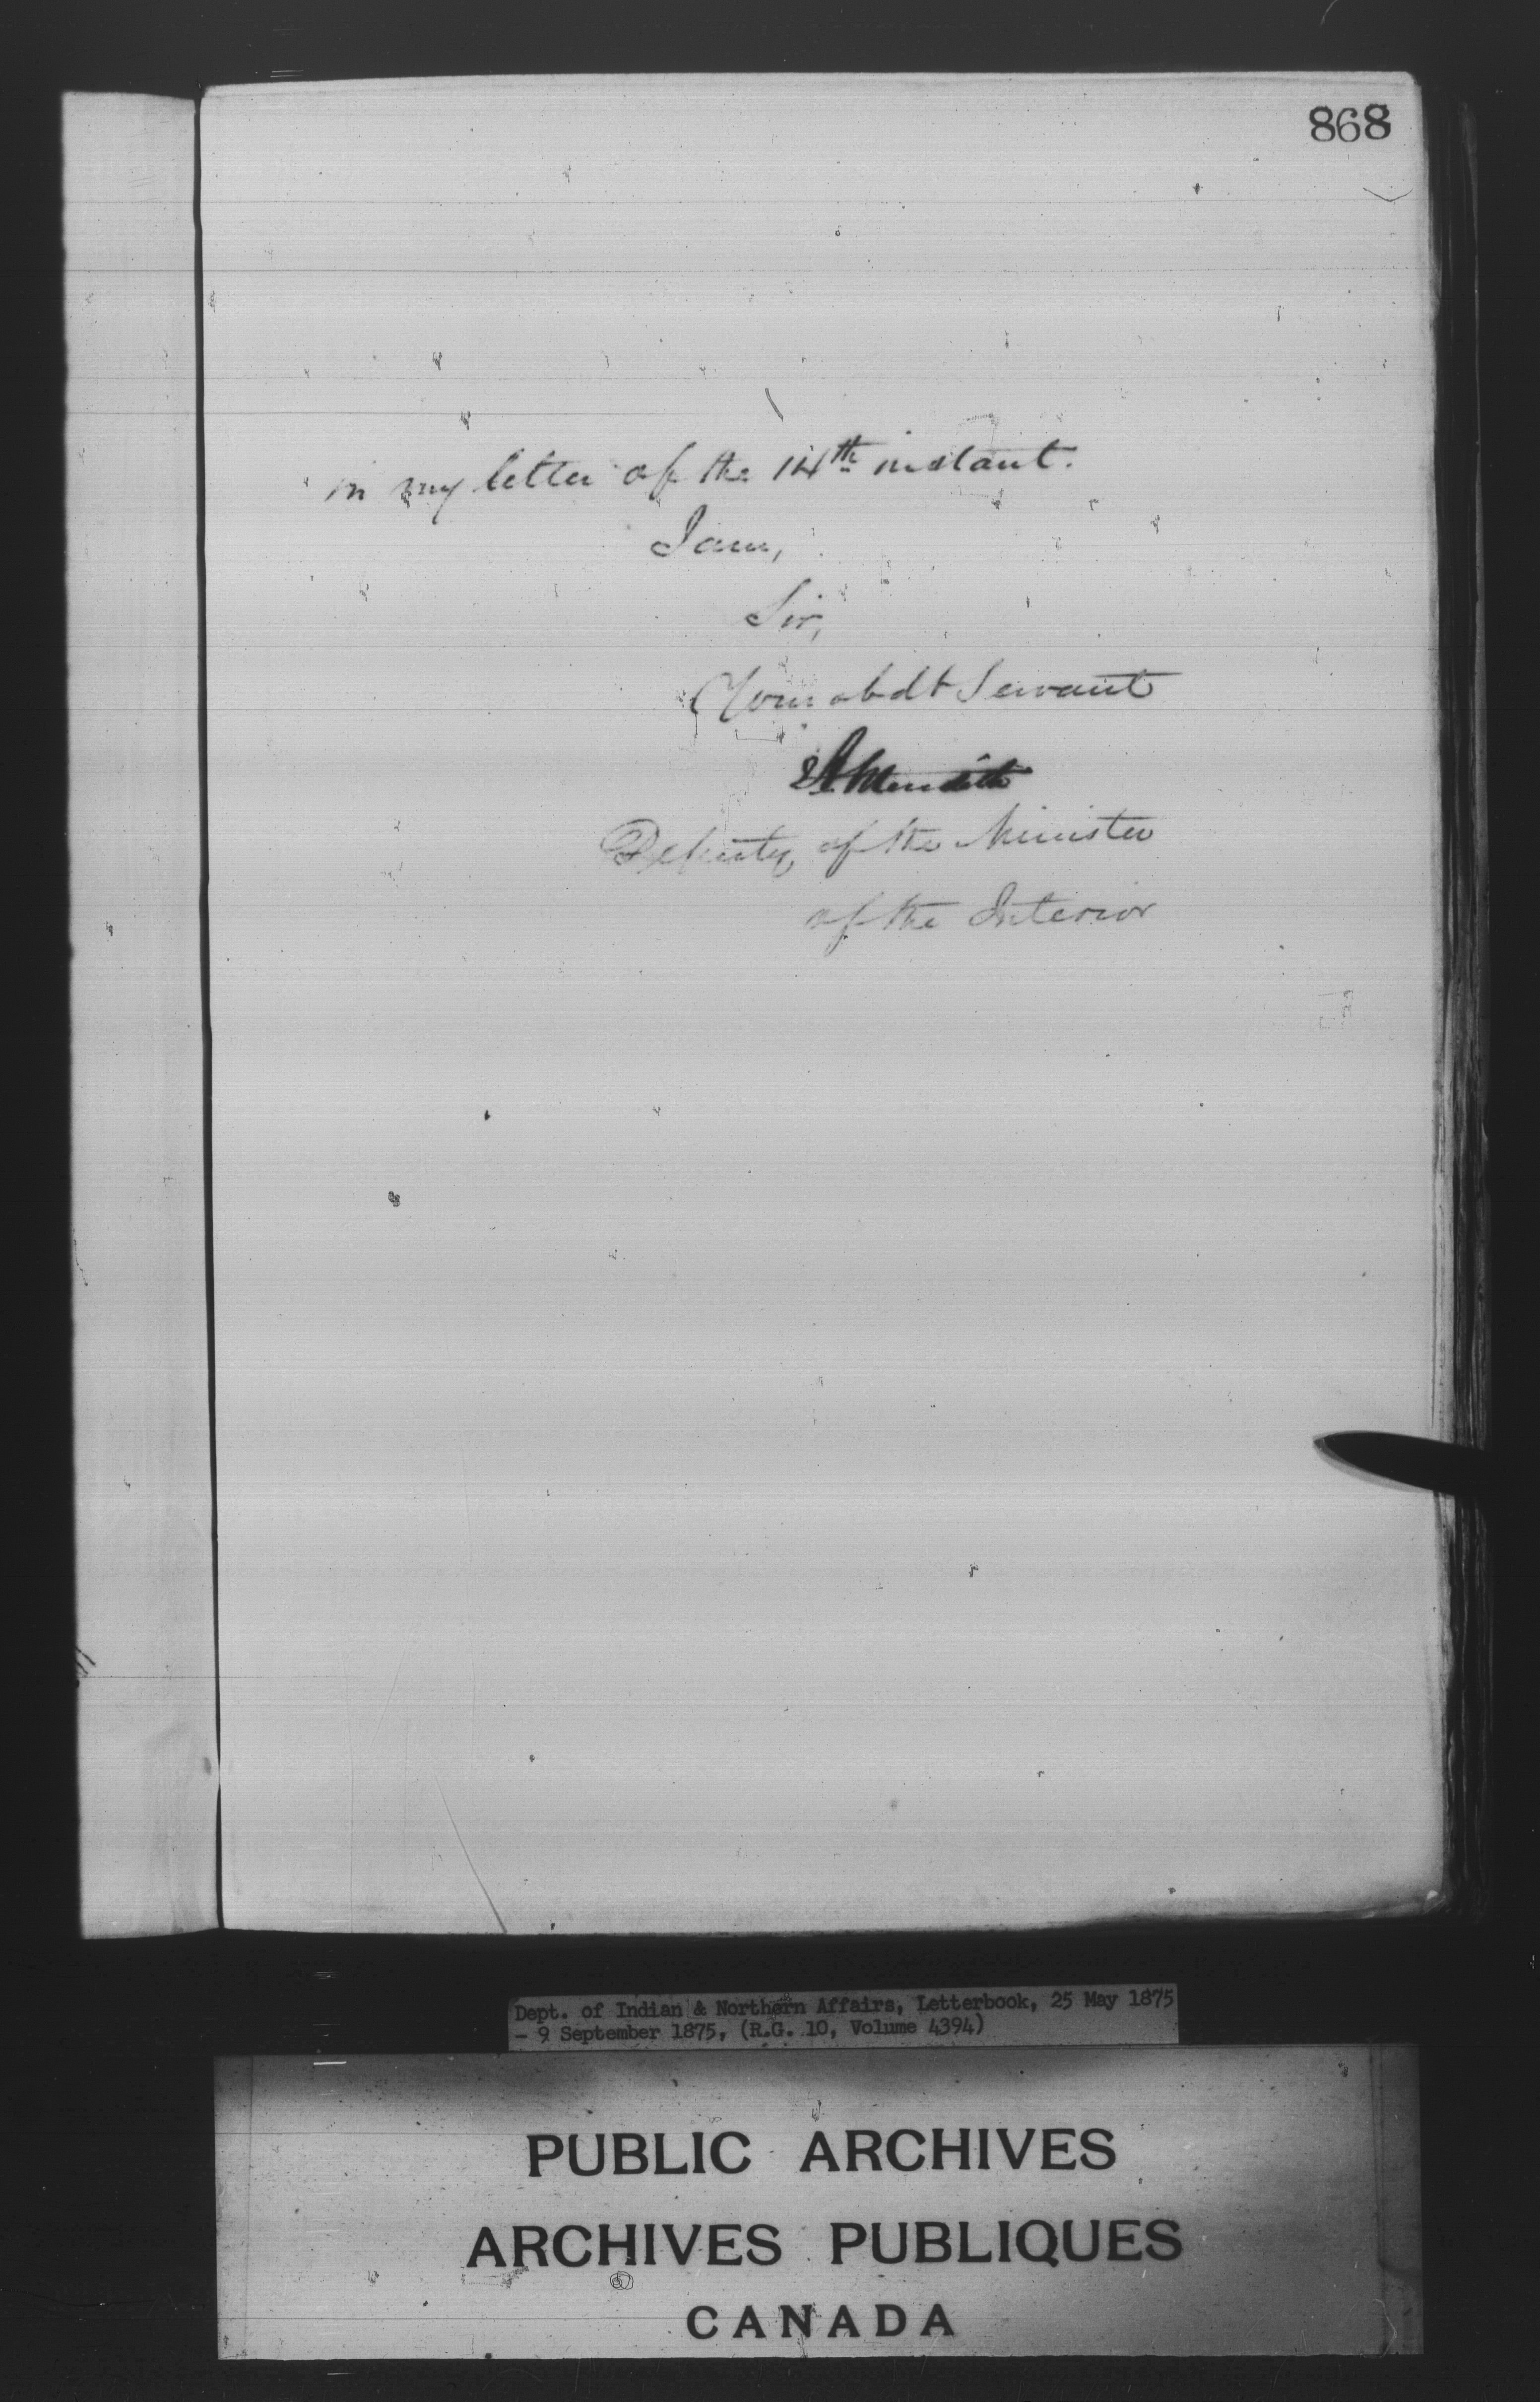 868
in my letter of the 14th instant.
I am,
Sir,
Your obdt Servant
EA Meredith
Deputy of the Minister
of the Interior
Dept. of Indian & Northern Affairs, Letterbook, 25 May 1875
- 9 September 1875, (R.G. 10, Volume 4394)
PUBLIC ARCHIVES
ARCHIVES PUBLIQUES
CANADA